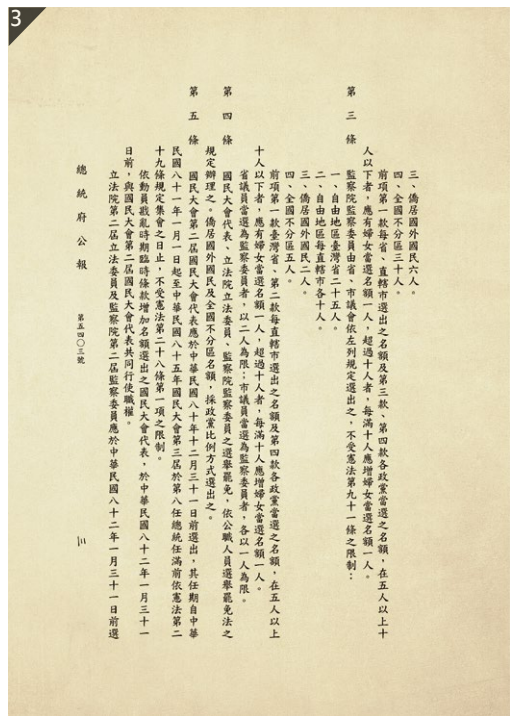 3
三、僑居國外國民六人。
四、全國不分區三十人。
前項第一款每省、直轄市選出之名額及第三款、第四款各政黨當選之名額，在五人以上十
人以下者，應有婦女當選名額一人，超過十人者，每滿十人應增婦女當選名額一人。
第三條　監察院監察委員由省、市議會依左列規定選出之，不受憲法第九十一條之限制：
一、自由地區臺灣省二十五人。
二、自由地區每直轄市各十人。
三、僑居國外國民二人。
四、全國不分區五人。
前項第一款臺灣省、第二款每直轄市選出之名額及第四款各政黨當選之名額，在五人以上
十人以下者，應有婦女當選名額一人，超過十人者，每滿十人應增婦女當選名額一人。
省議員當選為監察委員者，以二人為限；市議員當選為監察委員者，各以一人為限。
第四條　國民大會代表、立法院立法委員、監察院監察委員之選舉罷免，依公職人員選舉罷免法之
規定辦理之。僑居國外國民及全國不分區名額，採政黨比例方式選出之。
第五條　國民大會第二屆國民大會代表應於中華民國八十年十二月三十一日前選出，其任期自中華
民國八十一年一月一日起至中華民國八十五年國民大會第三屆於第八任總統任滿前依憲法第二
十九條規定集會之日止，不受憲法第二十八條第一項之限制。
依動員戡亂時期臨時條款增加名額選出之國民大會代表，於中華民國八十二年一月三十一
日前，與國民大會第二屆國民大會代表共同行使職權。
立法院第二屆立法委員及監察院第二屆監察委員應於中華民國八十二年一月三十一日前選
總統府公報
第五四〇三號
三